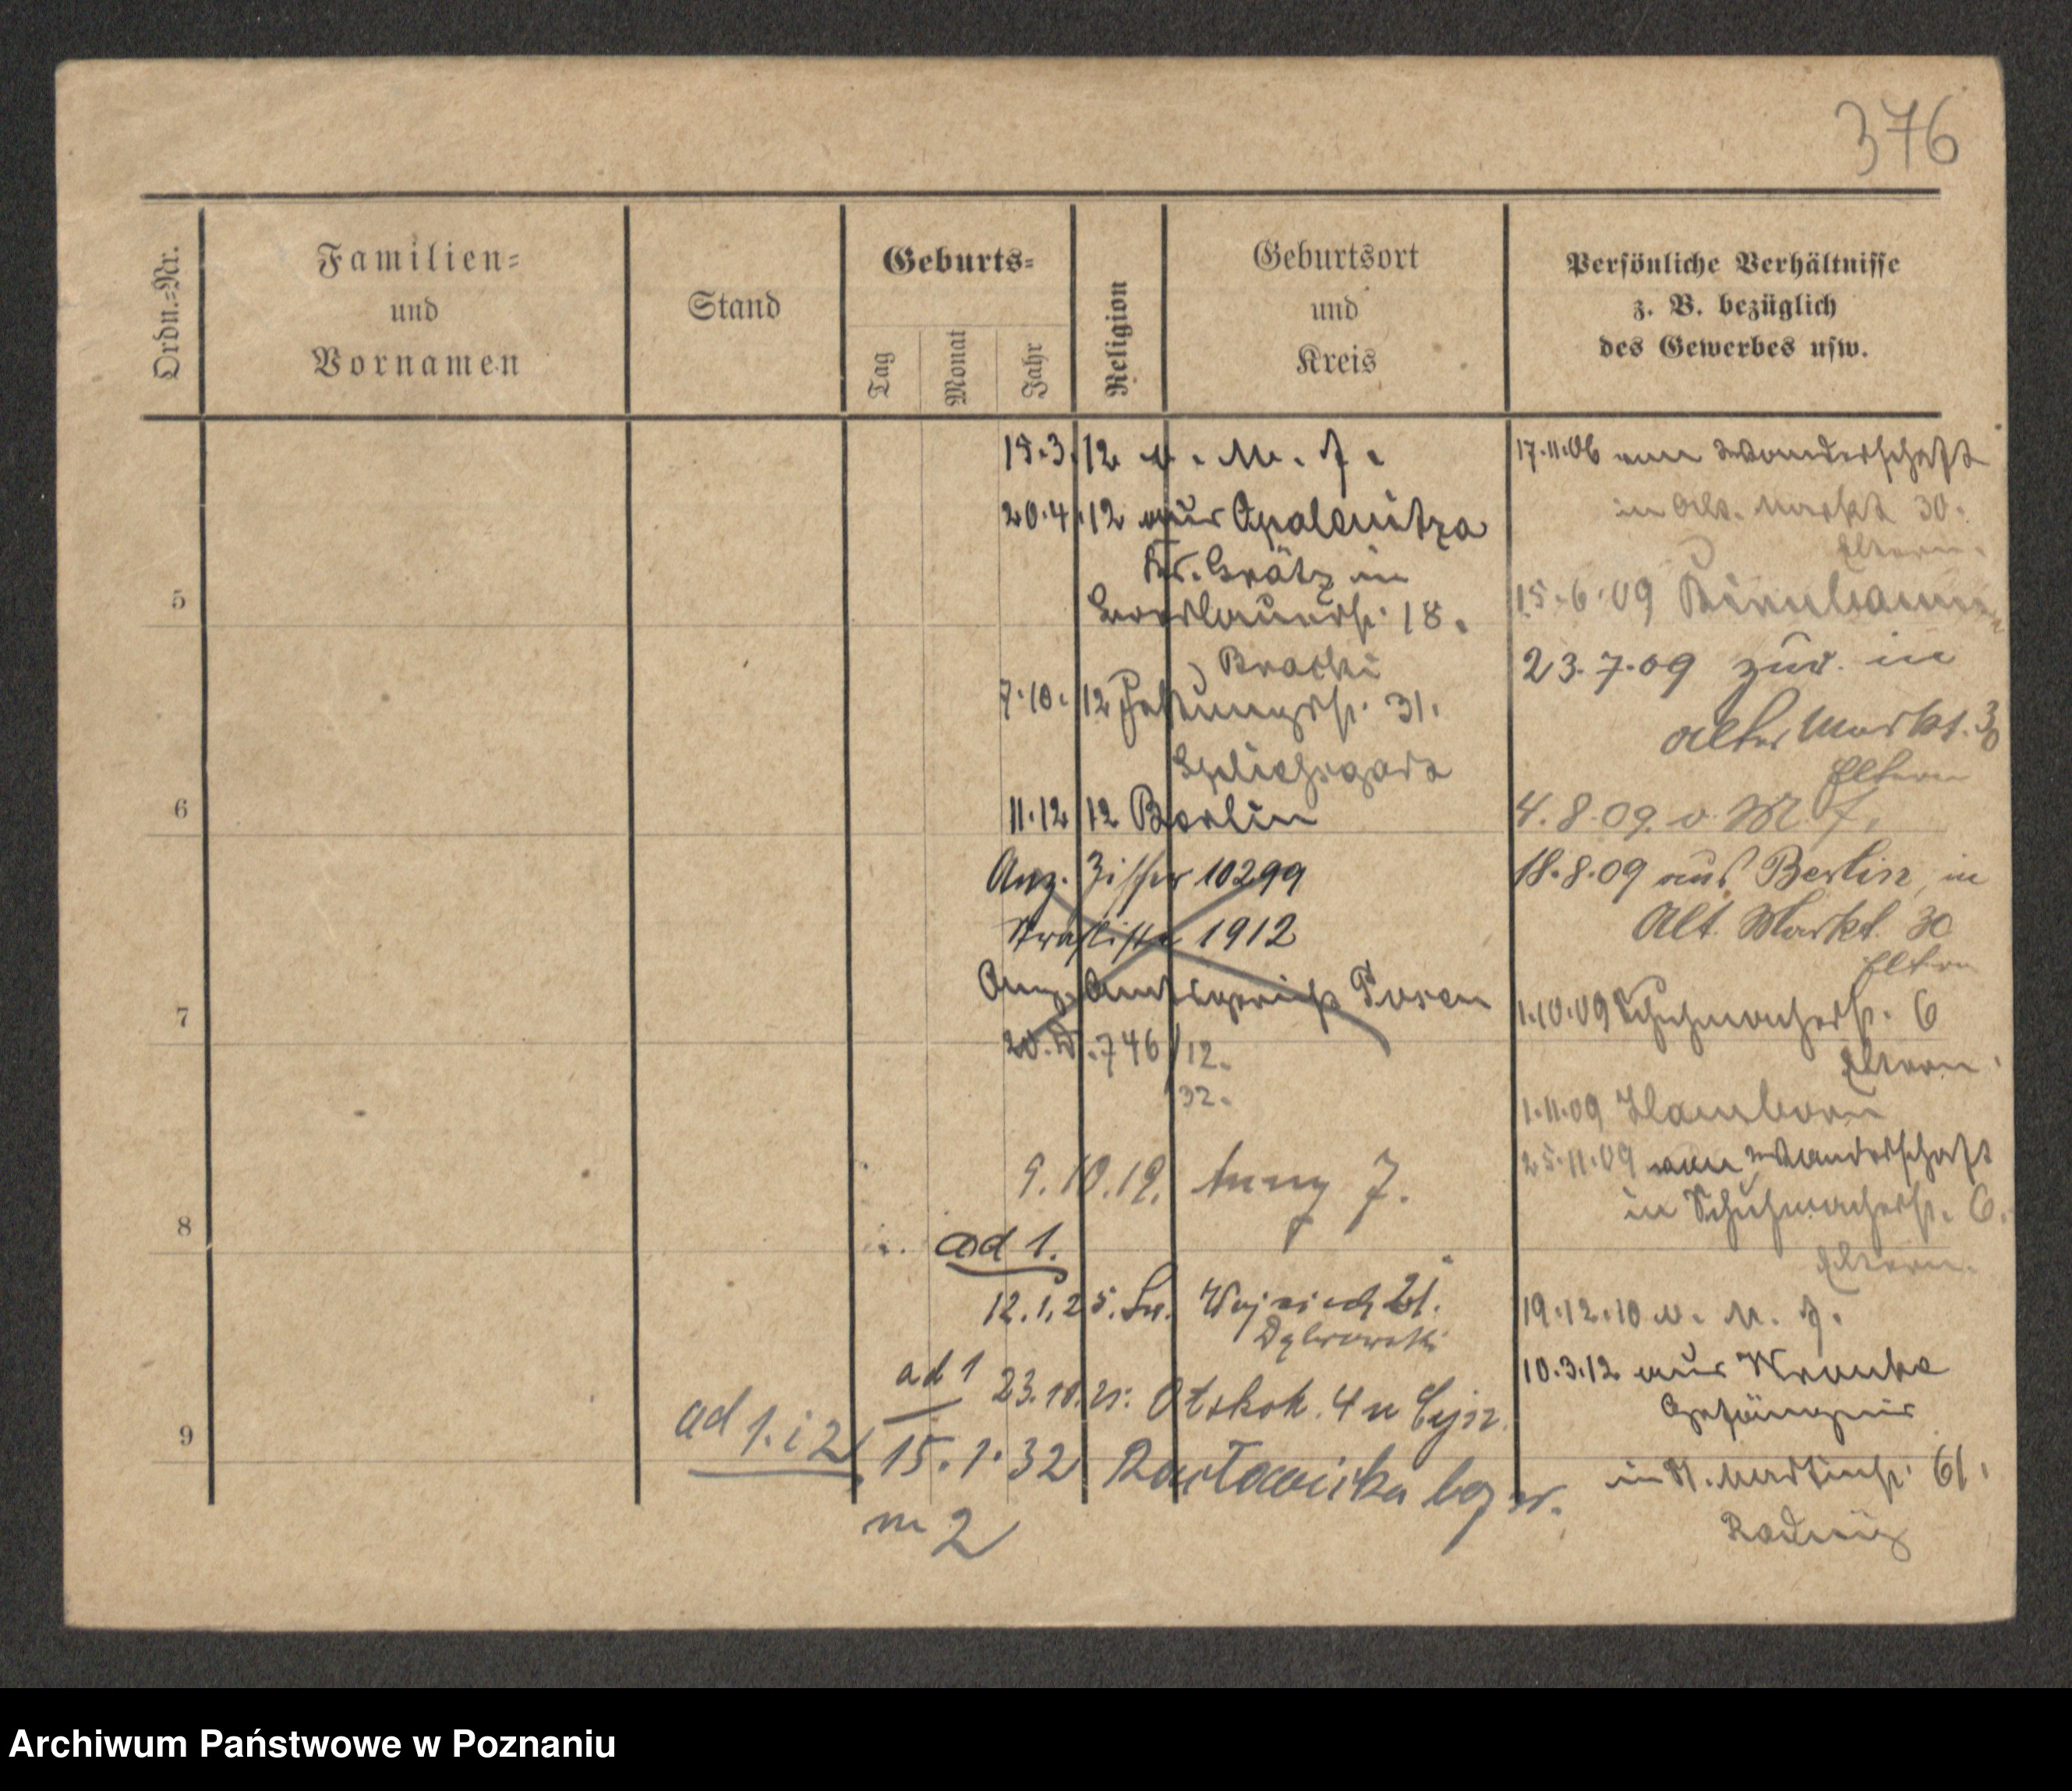 376
Ordn.=Nr.
Familien=
und
Vornamen
Stand
Geburts=
Tag
Monat
Jahr
Religion
Geburtsort
und
Kreis
Persönliche Verhältnisse
z. B. bezüglich
des Gewerbes usw.
5
6
7
8
9
15.3.12 v. M. f.
20.4.12 aus Opalenitza
Kr. Grätz in
18.
Bracki
7.10.12 31.
11.12.12 Berlin
Anz. Ziffer 10299
Strafliste 1912
Anz. Amtsgericht Posen
20. D. 746/12.
32.
9.10.19. J.
ad 1.
12.1.25. Wojciech 21.
Dąbrowski
ad 1 23.10.25. Otskok. 4 u
ad 1. i 2. 15.1.32
m 2
17.11.06 von Wanderschaft
in Alt. Markt 30.
Eltern.
15.6.09 Birnbaum
23.7.09 zur. in
Alter Markt. 30
Eltern
4.8.09. v. M. f.
18.8.09 aus Berlin in
Alt. Markt. 30
Eltern
1.10.09 Schuhmacherstr. 6
Eltern.
1.11.09 Hamborn
25.11.09 von Wanderschaft
in Schuhmacherstr. 6.
Eltern.
19.12.10 v. M. f.
10.3.12 aus Wronke
Gefängnis
in St. Martinstr. 61.
Archiwum Państwowe w Poznaniu